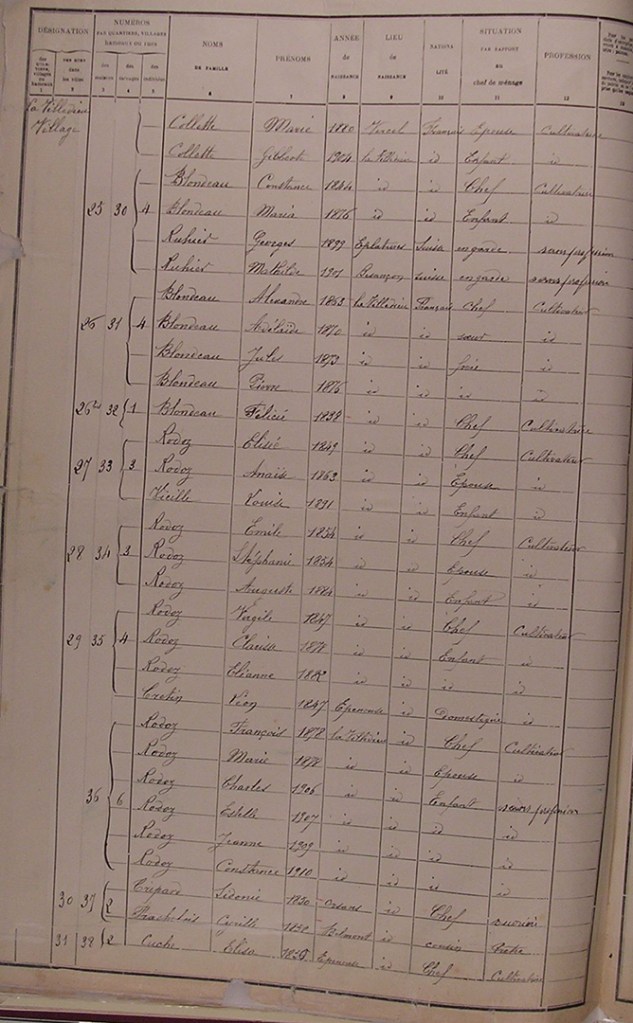 DÉSIGNATION NUMÉROS PAR QUARTIERS, VILLAGES NOMS DE FAMILLE PRÉNOMS ANNÉE de NAISSANCE LIEU de NAISSANCE NATIONALITÉ SITUATION PAR RAPPORT au chef de ménage PROFESSION
1 2 3 4 5 6 7 8 9 10 11 12
La Villedieu
Village
Collette Marie 1880 Vercel Français Epouse Cultivatrice
Collette 1904 la Villedieu id Enfant id
25 30 4 Blondeau Constance 1844 id id Chef Cultivatrice
Blondeau Maria 1876 id id Enfant id
Ruhier Georges 1899 Suisse en garde sans profession
Ruhier Mathilde 1901 Besançon suisse en garde sans profession
26 31 4 Blondeau Alexandre 1863 la Villedieu Français Chef Cultivateur
Blondeau Adélaïde 1870 id id sœur id
Blondeau Jules 1873 id id id
Blondeau 1876 id id id id
26 32 1 Blondeau Félicie 1838 id id Chef Cultivatrice
27 33 3 Rodoz Elisé 1849 id id Chef Cultivateur
Rodoz Anaïse 1863 id id Epouse id
Vieille Louise 1891 id id Enfant id
28 34 3 Rodoz Emile 1854 id id Chef Cultivateur
Rodoz Stéphanie 1854 id id Epouse id
Rodoz Auguste 1884 id id Enfant id
29 35 4 Rodoz Virgile 1847 id id Chef Cultivateur
Rodoz Clarisse 1878 id id Enfant id
Rodoz Elianne 1882 id id id id
Cretin Léon 1847 Epenouse id Domestique id
36 6 Rodoz François 1872 la Villedieu id Chef Cultivateur
Rodoz Marie 1878 id id Epouse id
Rodoz Charles 1906 id id Enfant sans profession
Rodoz Estelle 1907 id id id id
Rodoz Jeanne 1909 id id id id
Rodoz Constance 1910 id id id id
30 37 2 Trépard Sidonie 1830 Orsans id Chef
Cyrille 1830 Belmont id
31 38 2 Cuche Elisa Epenouse id Chef Cultivateur